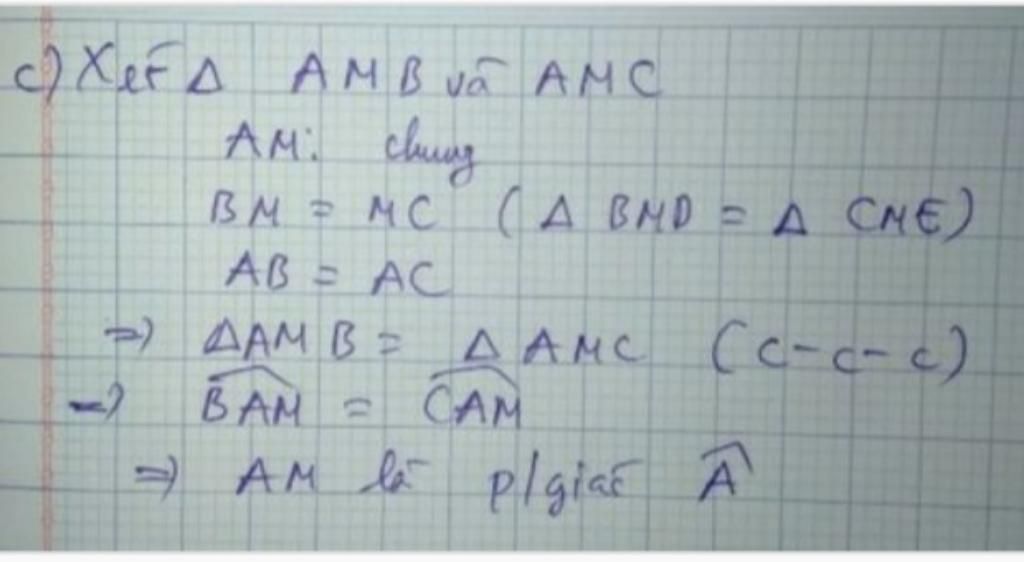 c) Xét Δ AMB và AMC
AM: chung
BM = MC (Δ BMD = Δ CME)
AB = AC
=> ΔAMB = Δ AMC (c-c-c)
=> \widehat{BAM} = \widehat{CAM}
=> AM là p/giác \widehat{A}